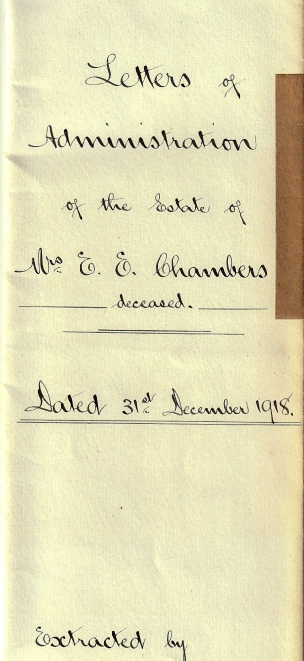 Letters of
Administration
of the Estate of
Mrs E. E. Chambers
deceased.
Dated 31st December 1918.
Extracted by